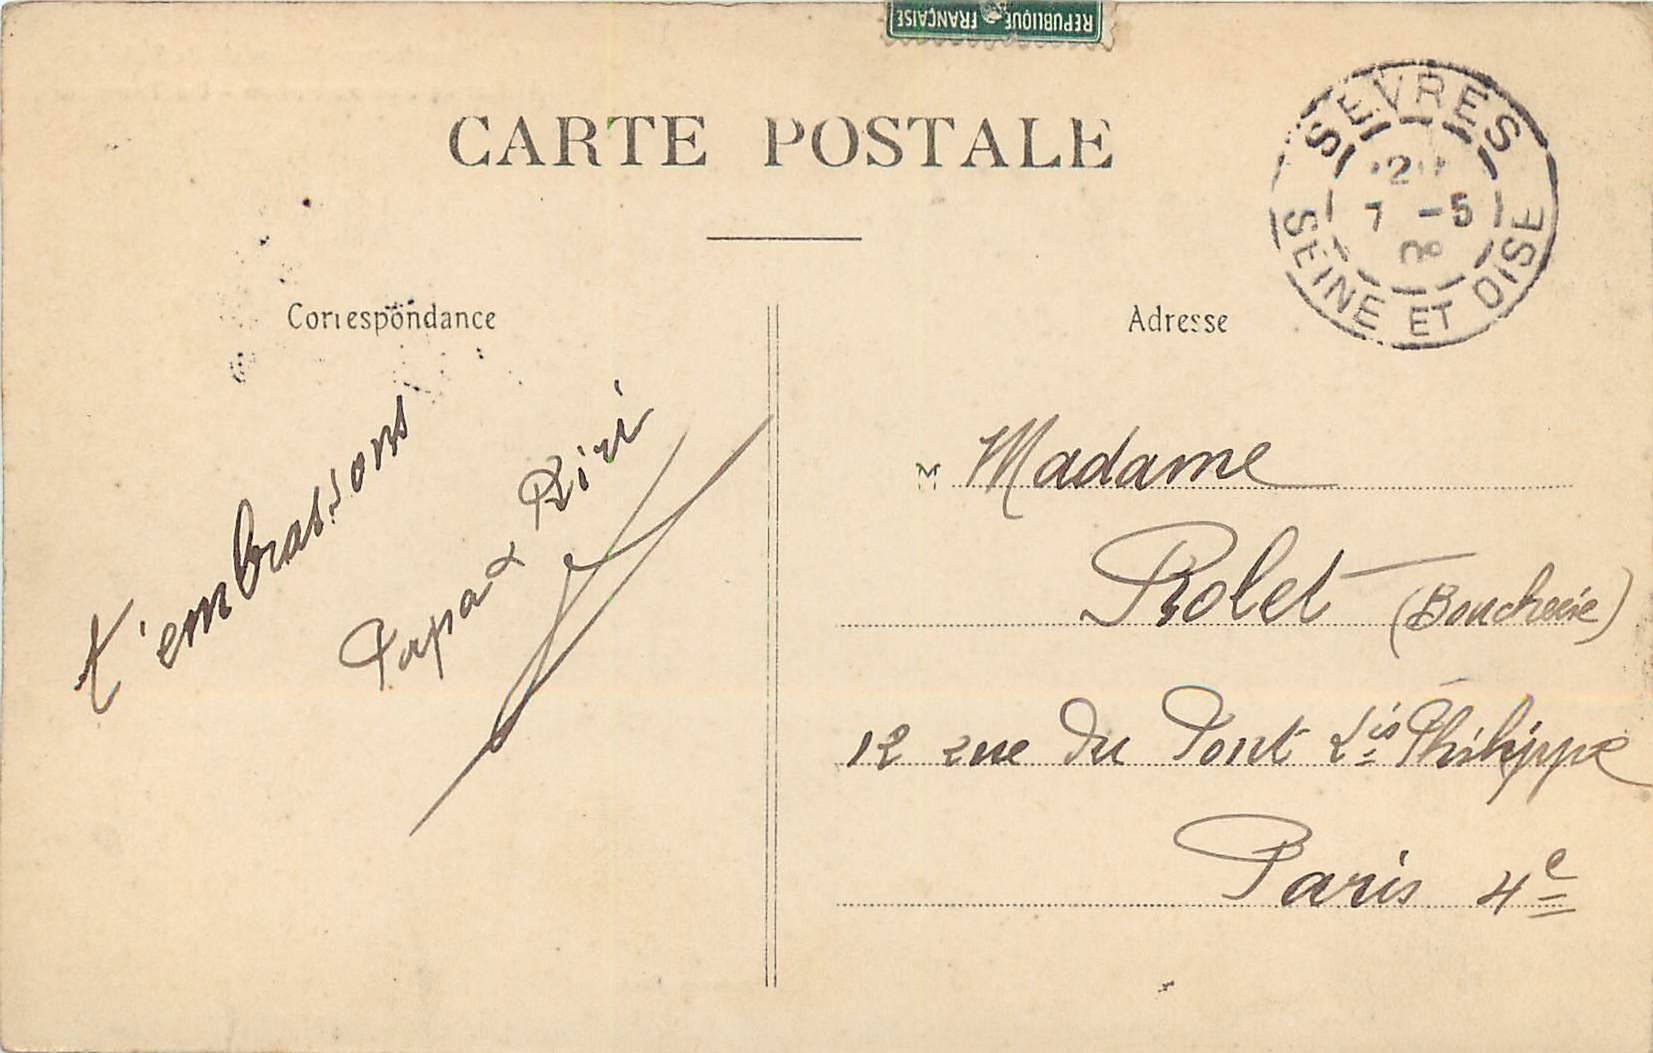 REPUBLIQUE FRANÇAISE
CARTE POSTALE
SEVRES
7 -5
08
SEINE ET OISE
Correspondance
Adresse
t'embrassons
Papa & Riri
M Madame
Rolet (Boucherie)
12 rue du Pont Lis Philippe
Paris 4e